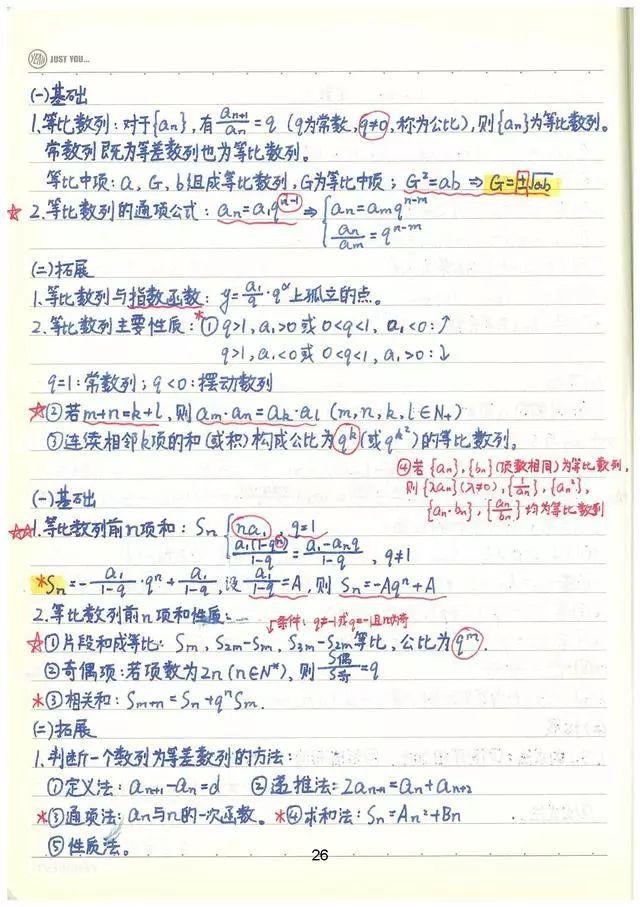 JUST YOU...
(一)基础
1.等比数列：对于{aₙ}，有aₙ₊₁/aₙ=q（q为常数，q≠0，称为公比），则{aₙ}为等比数列。
常数列既为等差数列也为等比数列。
等比中项：a，G，b组成等比数列，G为等比中项；G²=ab ⇒ G=±√ab
☆2.等比数列的通项公式：aₙ=a₁qⁿ⁻¹ ⇒ { aₙ=aₘqⁿ⁻ᵐ
aₙ/aₘ=qⁿ⁻ᵐ
(二)拓展
1.等比数列与指数函数：y=a₁/q·qˣ上孤立的点。
2.等比数列主要性质：*①q>1，a₁>0或0<q<1，a₁<0：↑
q>1，a₁<0或0<q<1，a₁>0：↓
q=1：常数列；q<0：摆动数列
☆②若m+n=k+l，则aₘ·aₙ=aₖ·aₗ（m,n,k,l∈N₊）
③连续相邻k项的和(或积)构成公比为qᵏ(或qᵏ²)的等比数列。
④若{aₙ}，{bₙ}(项数相同)为等比数列，
则{λaₙ}(λ≠0)，{1/aₙ}，{aₙ²}，
{aₙ·bₙ}，{aₙ/bₙ}均为等比数列
(一)基础
☆☆1.等比数列前n项和：Sₙ { na₁，q=1
a₁(1-qⁿ)/1-q = a₁-aₙq/1-q，q≠1
*Sₙ=-a₁/1-q·qⁿ+a₁/1-q，设a₁/1-q=A，则Sₙ=-Aqⁿ+A
2.等比数列前n项和性质：
条件：q≠-1或q=-1且m为奇
☆①片段和成等比：Sₘ，S₂ₘ-Sₘ，S₃ₘ-S₂ₘ等比，公比为qᵐ.
②奇偶项：若项数为2n(n∈N*)，则S偶/S奇=q
*③相关和：Sₘ₊ₙ=Sₙ+qⁿSₘ.
(二)拓展
1.判断一个数列为等差数列的方法：
①定义法：aₙ₊₁-aₙ=d ②递推法：2aₙ₊₁=aₙ+aₙ₊₂
*③通项法：aₙ与n的一次函数。*④求和法：Sₙ=An²+Bn
⑤性质法。
26